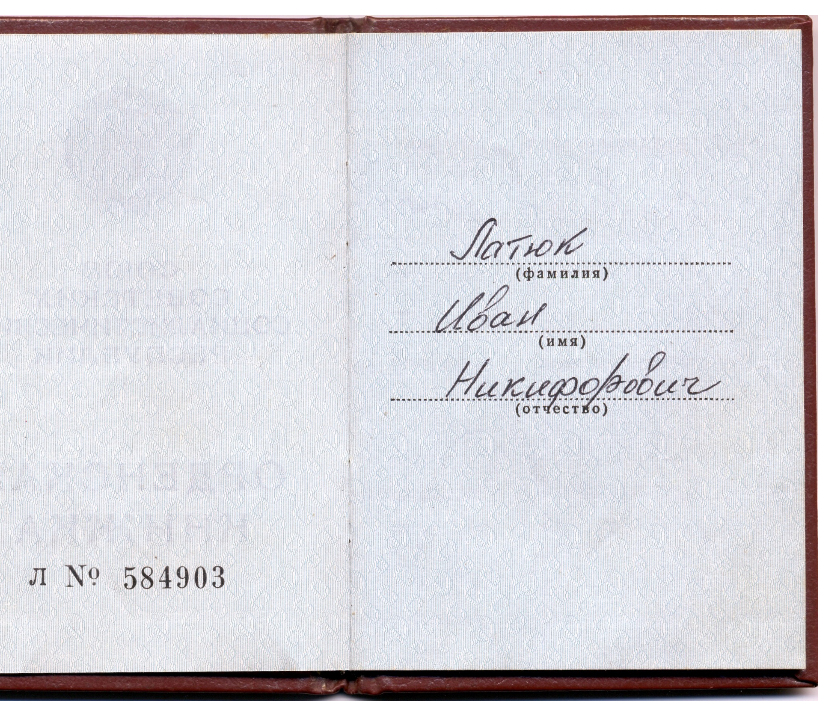 Л № 584903
Латюк
(фамилия)
Иван
(имя)
Никифорович
(отчество)